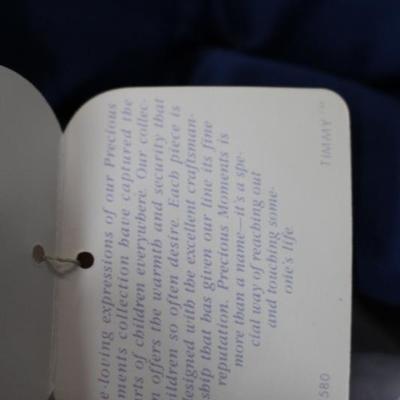 TIMMY™
580
-loving expressions of our Precious
ments collection have captured the
rts of children everywhere. Our collec-
n offers the warmth and security that
ildren so often desire. Each piece is
esigned with the excellent craftsman-
ship that has given our line its fine
reputation. Precious Moments is
more than a name—it's a spe-
cial way of reaching out
and touching some-
one's life